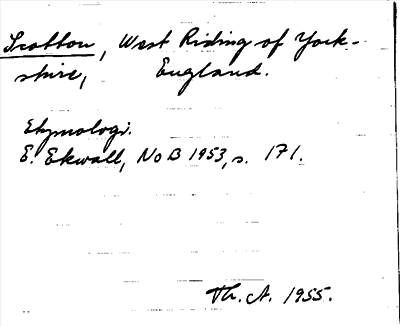 Scotton, West Riding of York-
shire, England.
Etymologi.
E. Ekwall, NoB 1953, s. 171.
Th. A. 1955.